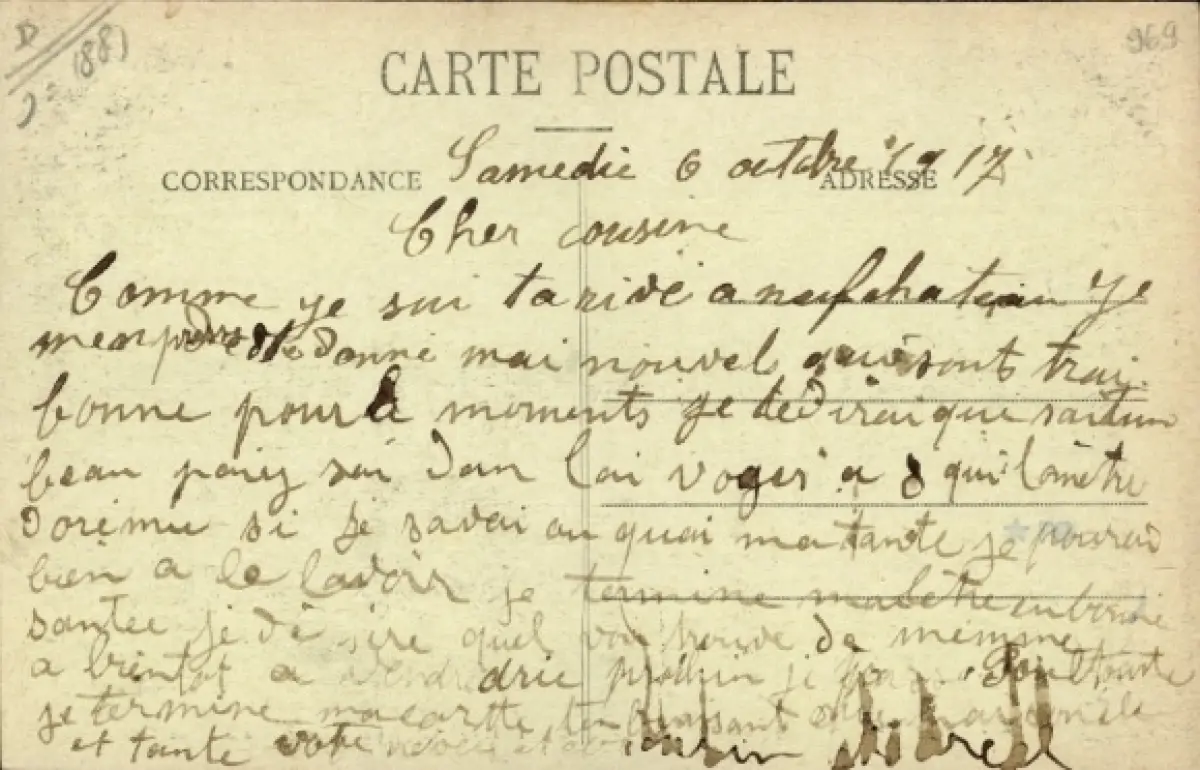 D
(88)
969
CARTE POSTALE
CORRESPONDANCE
ADRESSE
Samedie 6 octobre 1917
Cher cousine
Comme je sui tarivé a neufchateau je
donné mai nouvel qui sont trai
bonne pour le moments je te dirai que
beau paiez sai dan lai voges a 8 quilomètre
doremie si je savai ou quai ma tante je pourai
bien a le lavoir je termine ma lètre en bonne
santee je dé sire quel vou trouve de memme
a bientot a vendredie prochin je
je termine ma cartte
et tante votre neveu et cousin